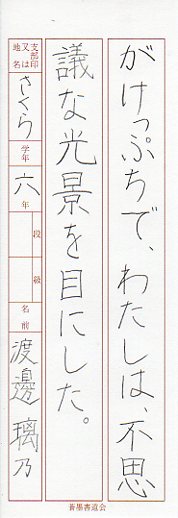 がけっぷちで、わたしは、不思
議な光景を目にした。
支部印又は地名 さくら 学年 六年 段 級 名前 渡邊璃乃
蒼墨書道会